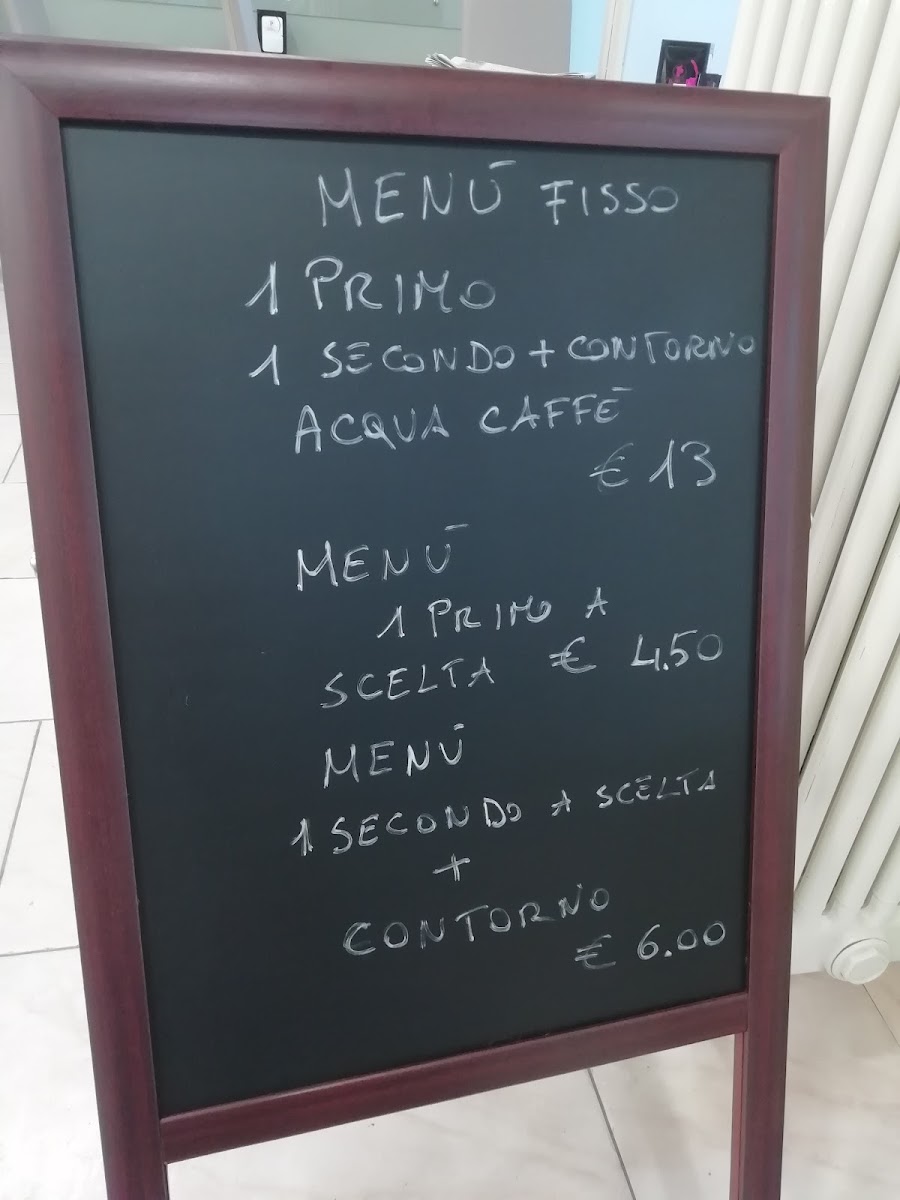 MENÚ FISSO
1 PRIMO
1 SECONDO + CONTORNO
ACQUA CAFFÈ
€ 13
MENÚ
1 PRIMO A
SCELTA € 4.50
MENÚ
1 SECONDO A SCELTA
+
CONTORNO
€ 6.00